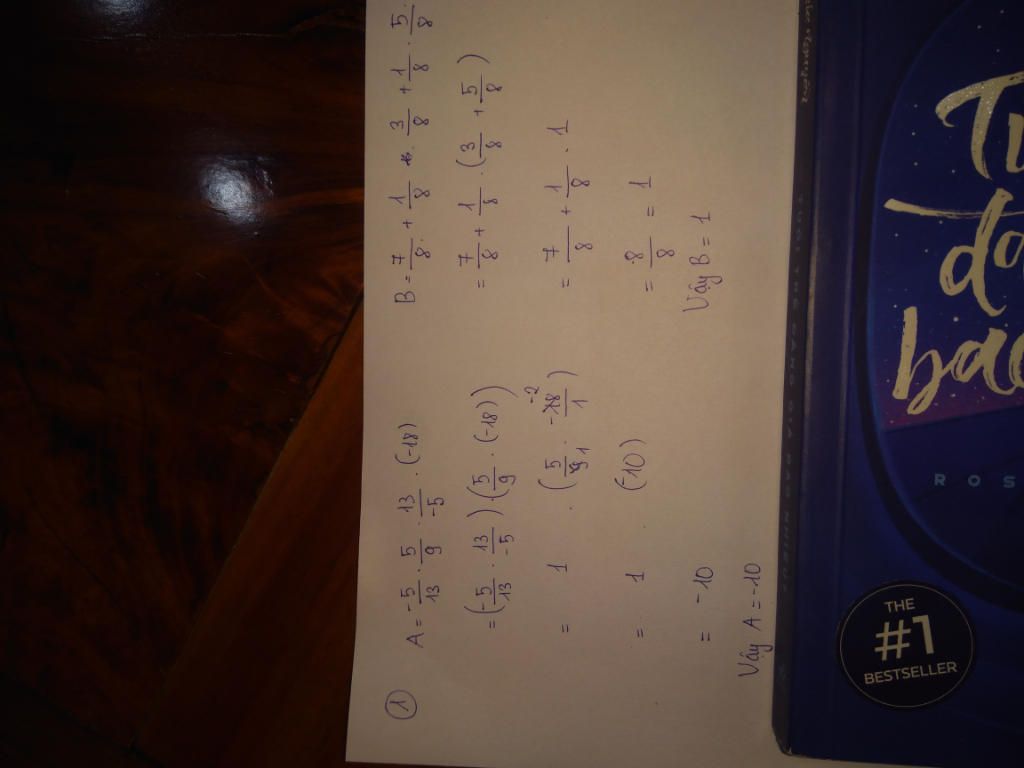 ①
A = -5/13 . 5/9 . 13/-5 . (-18)
= (-5/13 . 13/-5) . (5/9 . (-18))
= 1 . (5/9 1 . -18 -2/1)
= 1 . (-10)
= -10
Vậy A = -10
B = 7/8 + 1/8 . 3/8 + 1/8 . 5/8
= 7/8 + 1/8 . (3/8 + 5/8)
= 7/8 + 1/8 . 1
= 8/8 = 1
Vậy B = 1
THE
#1
BESTSELLER
ROS